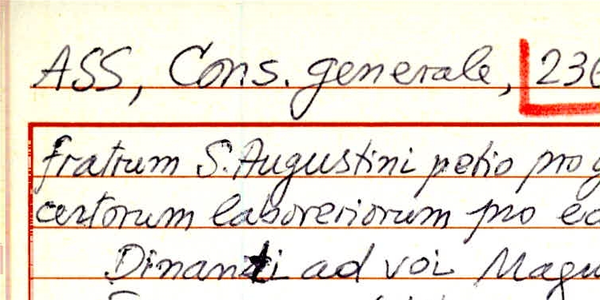 ASS, Cons. generale, 236
fratrum S. Augustini petio pro
certorum laboreriorum pro
Dinanzi ad voi Magn